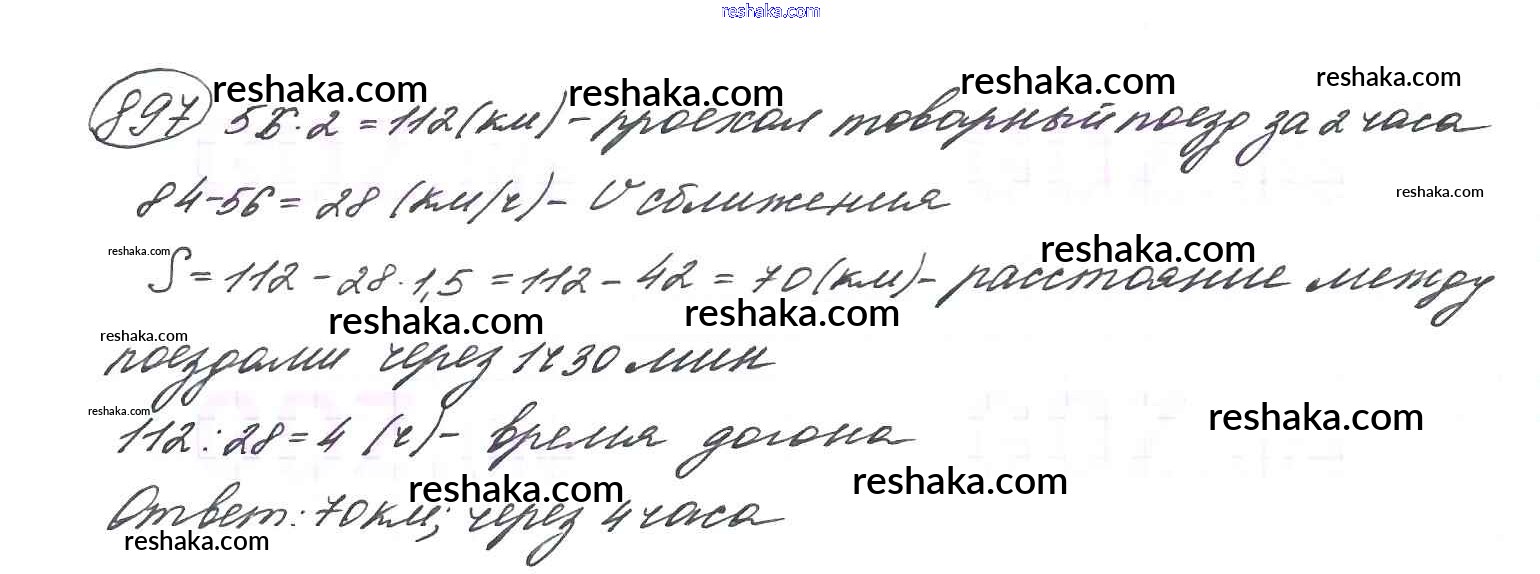 reshaka.com
reshaka.com reshaka.com reshaka.com reshaka.com
897 56·2=112(км)-проехал товарный поезд за 2 часа
84-56=28(км/ч)-V сближения
reshaka.com
reshaka.com reshaka.com
S=112-28·1,5=112-42=70(км)-расстояние между
reshaka.com reshaka.com
reshaka.com
поездами через 1ч30мин
reshaka.com reshaka.com
112:28=4(ч)-время догона
reshaka.com reshaka.com
Ответ:70км; через 4часа
reshaka.com